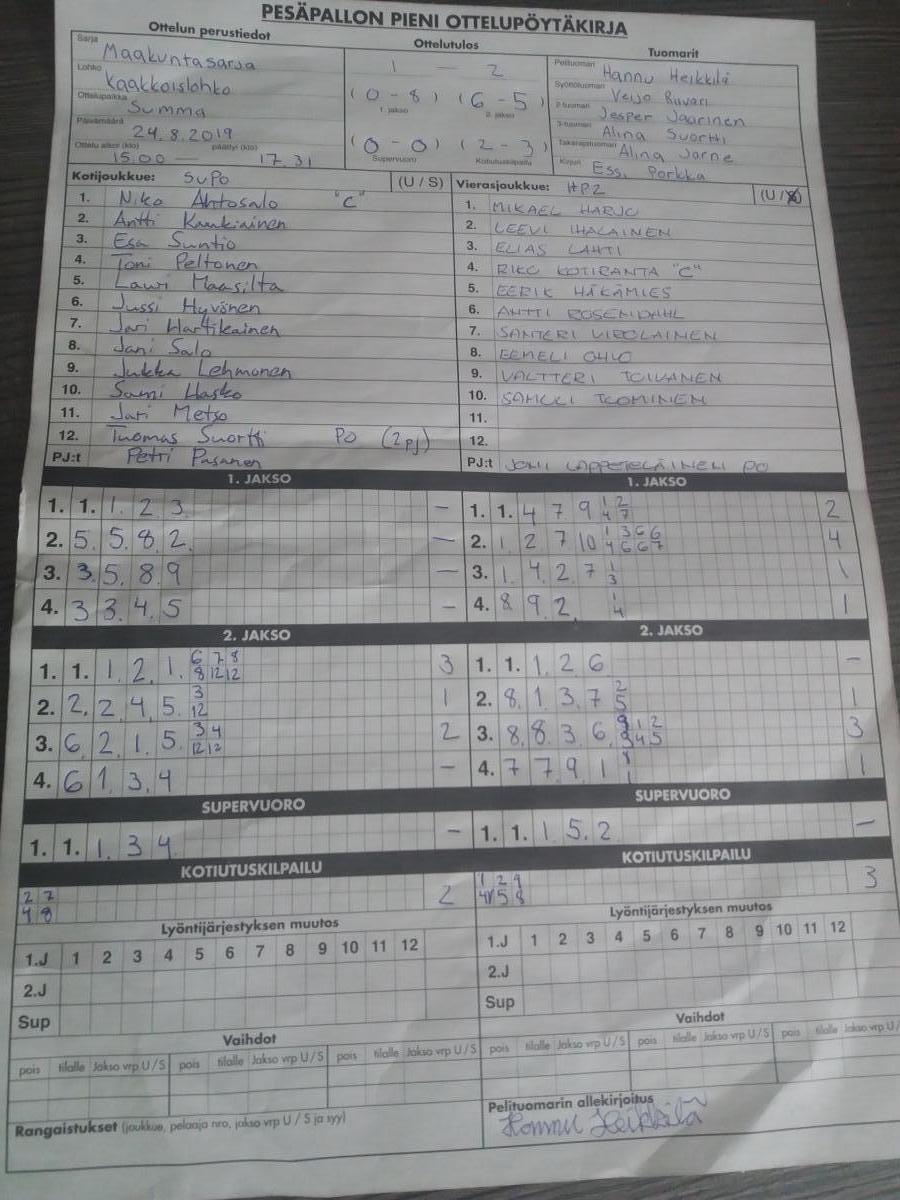 PESÄPALLON PIENI OTTELUPÖYTÄKIRJA
Ottelun perustiedot
Sarja
Maakuntasarja
Lohko
Kaakkoislohko
Ottelupaikka
Summa
Päivämäärä
24.8.2019
Ottelu alkoi (klo) päättyi (klo)
15.00 — 17.31
Ottelutulos
1 — 2
(0-8) (6-5)
1. jakso 2. jakso
(0-0) (2-3)
Supervuoro Kotiutuskilpailu
Tuomarit
Pelituomari Hannu Heikkilä
Syöttötuomari Veijo
2-tuomari Jesper Jaarinen
3-tuomari Alina Suortti
Takarajatuomari Alina Jorne
Kirjuri Essi Porkka
Kotijoukkue: SuPo (U / S)
1. Niko Ahtosalo "C"
2. Antti Kaukiainen
3. Esa Suntio
4. Toni Peltonen
5. Lauri Maasilta
6. Jussi Hyvönen
7. Jari Hartikainen
8. Jani Salo
9. Jukka Lehmonen
10. Sami Hasko
11. Jari Metso
12. Tuomas Suortti PO (2pj)
PJ:t Petri Pasanen
Vierasjoukkue: HP2 (U / S)
1. MIKAEL HARJU
2. LEEVI IHALAINEN
3. ELIAS LAHTI
4. RIKU KOTIRANTA "C"
5. EERIK HÄKÄMIES
6. ANTTI ROSENDAHL
7. SANTERI VIROLAINEN
8. EEMELI OHLO
9. VALTTERI TOIVANEN
10. SAMULI TUOMINEN
11.
12.
PJ:t JONI LAPPETELÄINEN PO
1. JAKSO
1. 1. 1. 2 3 —
2. 5 5. 8 2 —
3. 3. 5. 8 9 —
4. 3 3. 4. 5 —
1. JAKSO
1. 1. 4 7 9 1 2 2
4 7
2. 1 2 7 10 1 3 6 6 4
4 6 6 7
3. 1. 4 2 7 1 1
3
4. 8 9 2. 1 1
4
2. JAKSO
1. 1. 1. 2. 1. 6 7 8 3
8 12 12
2. 2. 2 4 5. 3 1
12
3. 6 2 1. 5. 3 4 2
12 12
4. 6 1 3 4 —
2. JAKSO
1. 1. 1 2 6 —
2. 8 1 3 7 2 1
5
3. 8 8 3 6 9 1 2 3
3 4 5
4. 7 7 9 1 8 1
1
SUPERVUORO
1. 1. 1. 3 4 —
SUPERVUORO
1. 1. 1 5. 2 —
KOTIUTUSKILPAILU
2 7 2
4 8
KOTIUTUSKILPAILU
1 2 9 3
4 5 8
Lyöntijärjestyksen muutos
1.J 1 2 3 4 5 6 7 8 9 10 11 12
2.J
Sup
Lyöntijärjestyksen muutos
1.J 1 2 3 4 5 6 7 8 9 10 11 12
2.J
Sup
Vaihdot
pois tilalle Jakso vrp U / S pois tilalle Jakso vrp U / S pois tilalle Jakso vrp U / S
Vaihdot
pois tilalle Jakso vrp U / S pois tilalle Jakso vrp U / S pois tilalle Jakso vrp U /
Rangaistukset (joukkue, pelaaja nro, jakso vrp U / S ja syy)
Pelituomarin allekirjoitus
Hannu Heikkilä